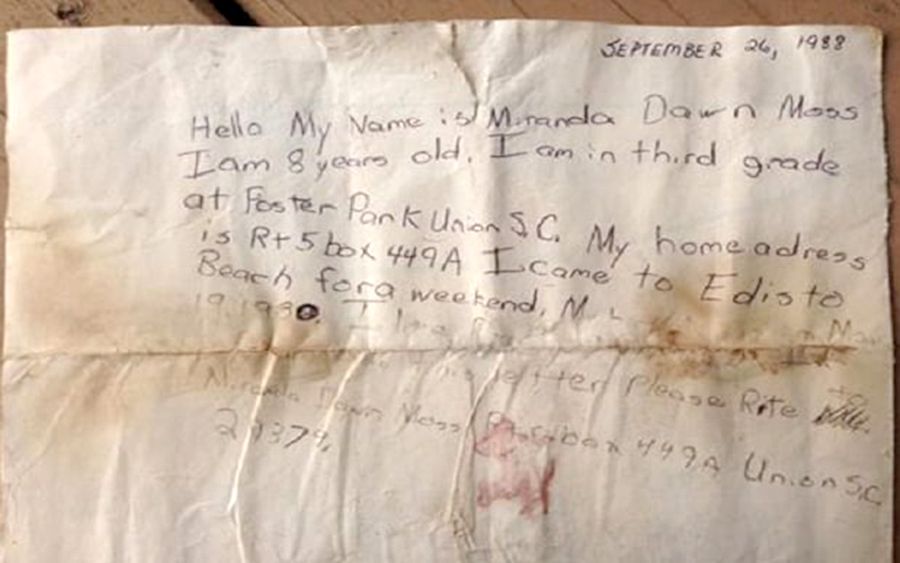 SEPTEMBER 26, 1988
Hello My Name is Miranda Dawn Moss
I am 8 years old. I am in third grade
at Foster Park Union S.C. My home adress
is Rt 5 box 449A I came to Edisto
Beach for a weekend, M
19
letter Please Rite
Miranda Dawn Moss box 449A Union S.C.
29379,